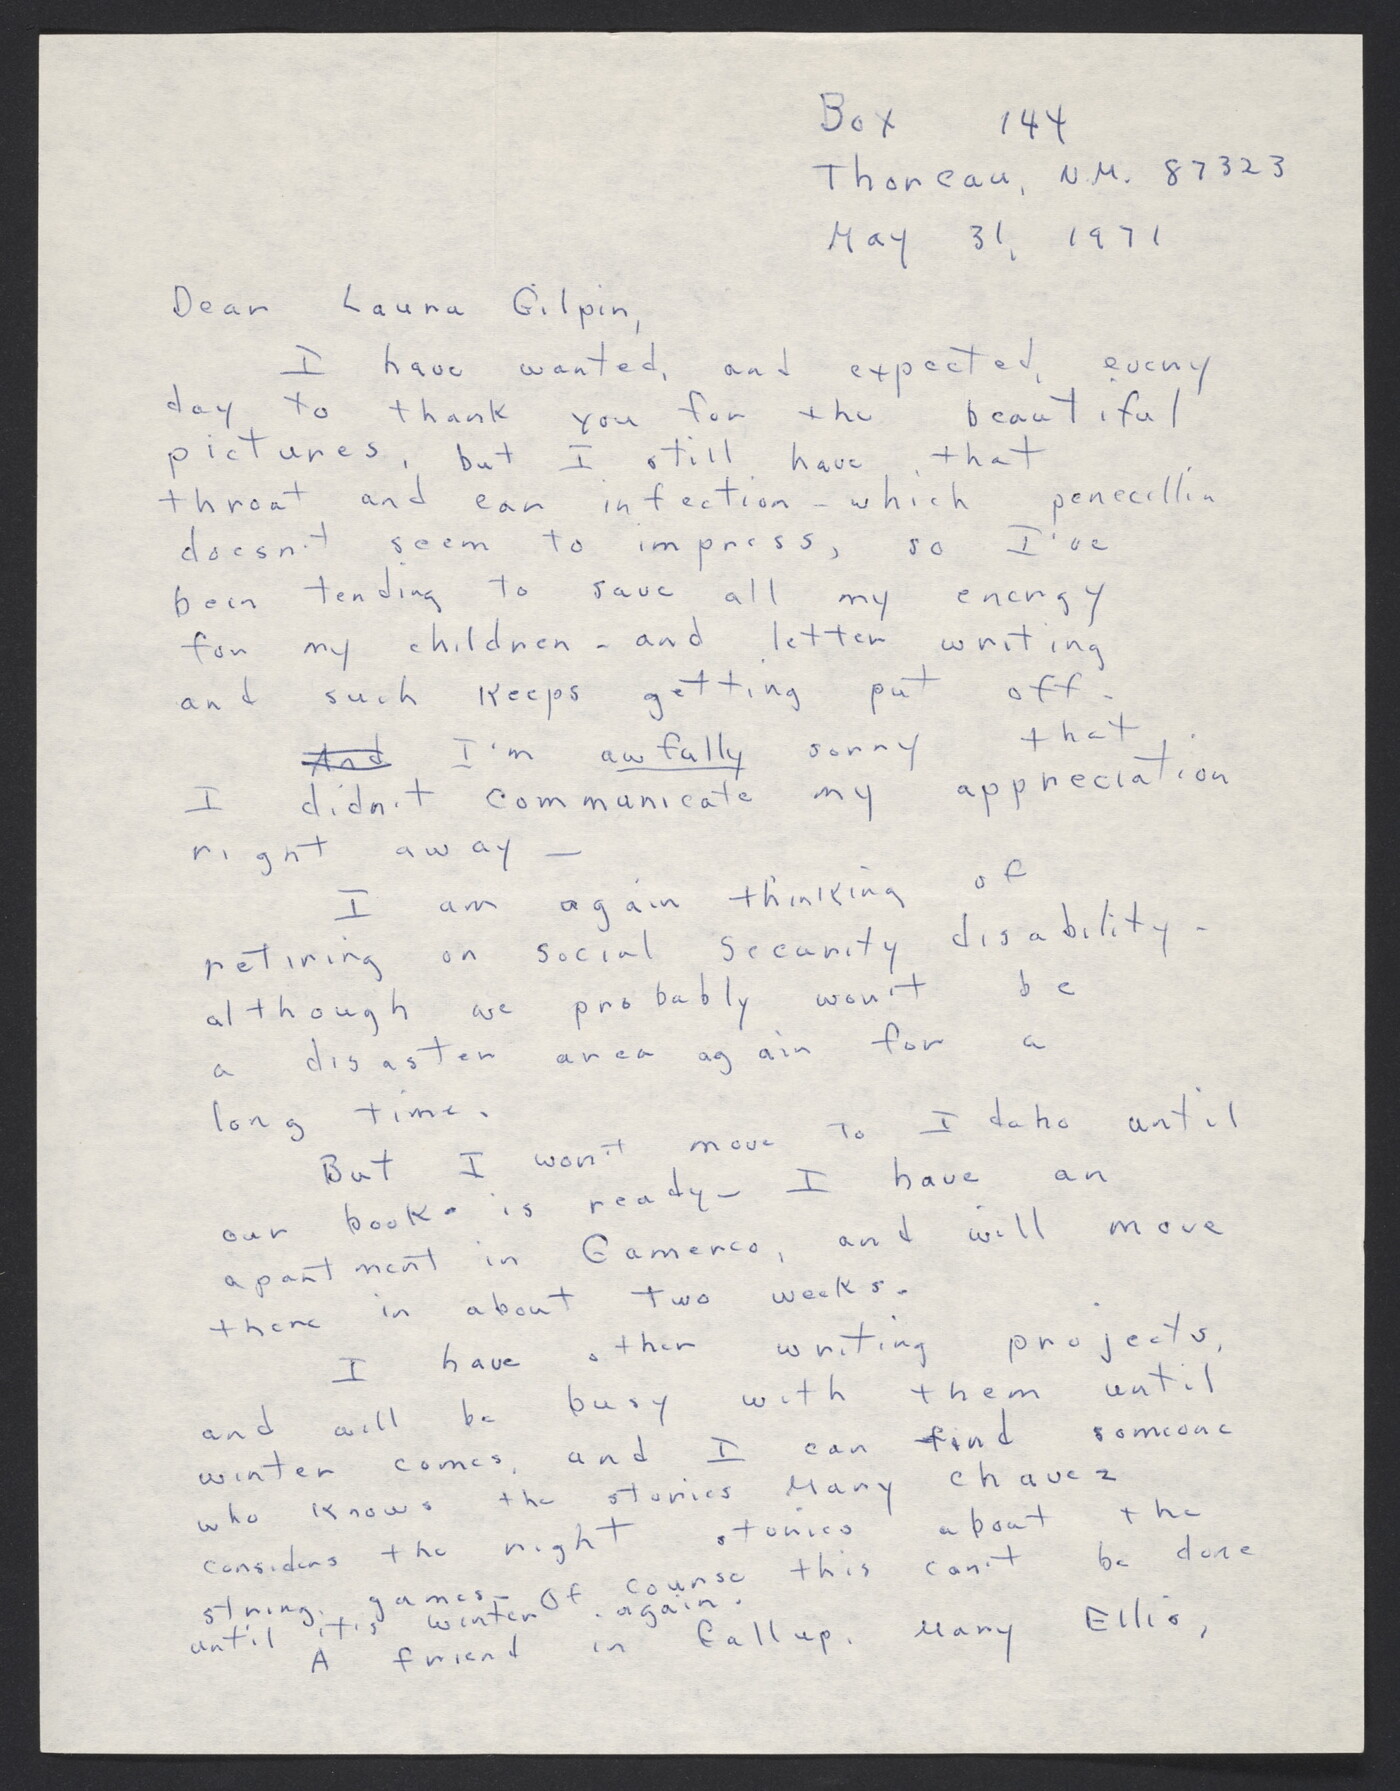 Box 144
Thoreau, N.M. 87323
May 31, 1971
Dear Laura Gilpin,
I have wanted, and expected, every
day to thank you for the beautiful
pictures, but I still have that
throat and ear infection - which penecillin
doesn't seem to impress, so I've
been tending to save all my energy
for my children - and letter writing
and such keeps getting put off.
And I'm awfully sorry that
I didn't communicate my appreciation
right away —
I am again thinking of
retiring on social security disability -
although we probably won't be
a disaster area again for a
long time.
But I won't move to Idaho until
our book is ready - I have an
apartment in Gamerco, and will move
there in about two weeks.
I have other writing projects,
and will be busy with them until
winter comes, and I can find someone
who knows the stories Mary Chavez
considers the right stories about the
string games - Of course this can't be done
until it's winter again.
A friend in Gallup, Mary Ellis,